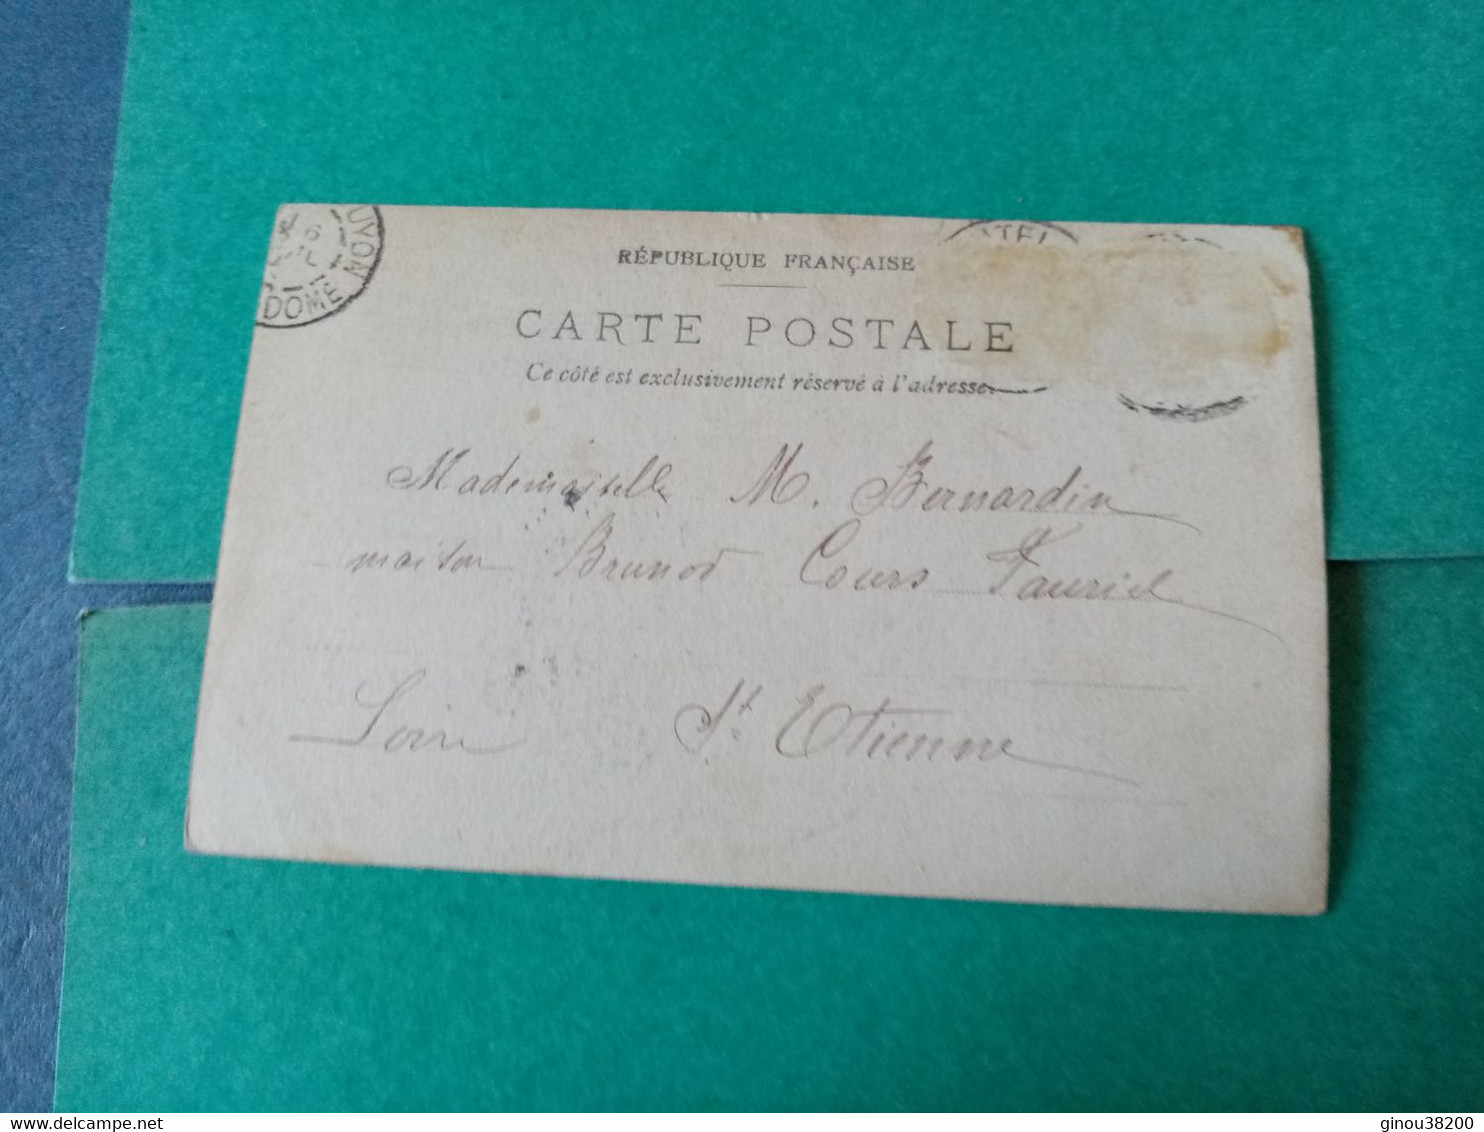 RÉPUBLIQUE FRANÇAISE
CARTE POSTALE
Ce côté est exclusivement réservé à l'adresse
UYON
DOME
ATEL
Mademoiselle M. Bernardin
maison Brunod Cours Fauriel
Loire St Etienne
delcampe.net
ginou38200